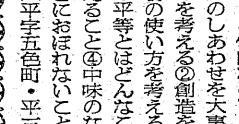 のしあわせを大事
を考える②創造を
の使い方を考える
平等とはどんなこ
ること④中味のな
におぼれないこと
平字五色町・平